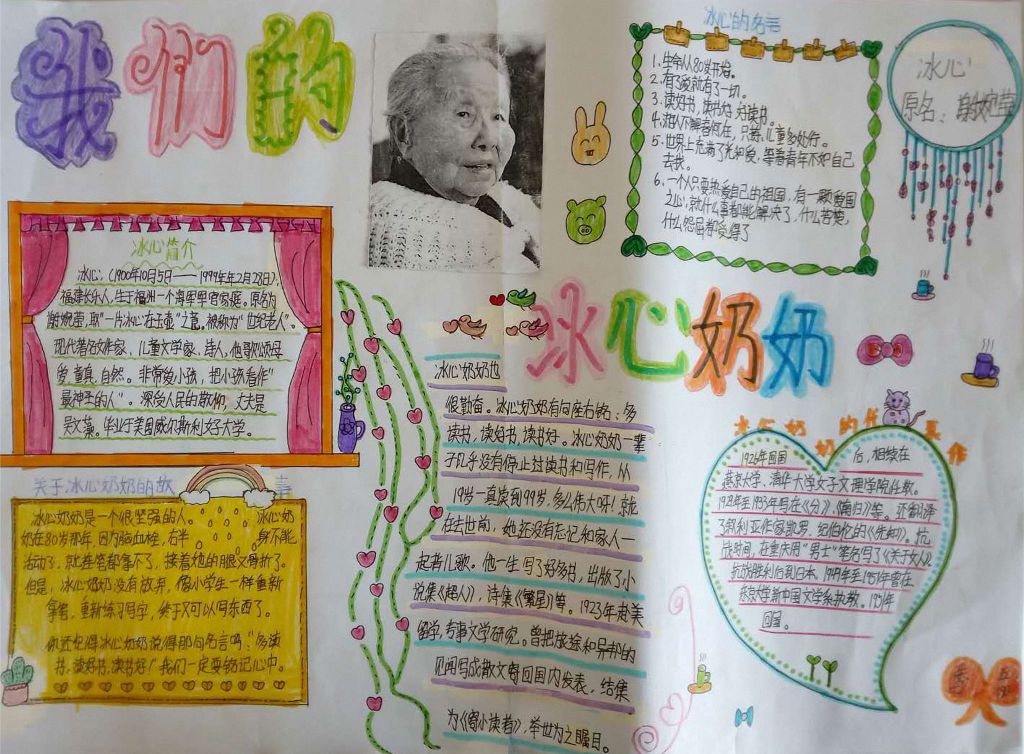 我們的
冰心奶奶
冰心的名言
1.生命从80岁开始。
2.有了爱就有了一切。
3.读好书,读书好,好读书。
4.游人不解春何在,只拣儿童多处行。
5.世界上充满了光和爱,等着青年不知自己
去找。
6.一个人只要热爱自己的祖国,有一颗爱国
之心,就什么事都能解决了,什么苦楚,
什么怨屈都受得了
冰心
原名:谢婉莹
冰心简介
冰心,(1900年10月5日——1999年年2月28日),
福建长乐人,生于福州一个海军军官家庭。原名为
谢婉莹,取“一片冰心在玉壶”之意。被称为“世纪老人”。
现代著名女作家、儿童文学家、诗人,他歌颂母
爱、童真、自然。非常爱小孩,把小孩看作“
最神圣的人”。深受人民的敬仰,丈夫是
吴文藻。毕业于美国威尔斯利女子大学。
关于冰心奶奶的故事
冰心奶奶是一个很坚强的人。冰心奶
奶在80岁那年,因为脑血栓,右半身不能
活动了,就连笔都拿不了,接着她的腿又骨折了。
但是,冰心奶奶没有放弃,像小学生一样重新
拿笔,重新练习写字,终于又可以写东西了。
你还记得冰心奶奶说得那句名言吗:“多读
书,读好书,读书好!我们一定要铭记心中。
冰心奶奶也
很勤奋。冰心奶奶有句座右铭:多
读书,读好书,读书好。冰心奶奶一辈
子几乎没有停止过读书和写作,从
19岁一直读到99岁,多么伟大呀!就
在去世前,她还没有忘记和家人一
起看儿歌。他一生写了好多书,出版了小
说集《超人》,诗集《繁星》等。1923年赴美
留学,专事文学研究。曾把旅途和异邦的
见闻写成散文寄回国内发表,结集
为《寄小读者》,举世为之瞩目。
冰心奶奶的代表作
1926年回国后,相续在
燕京大学、清华大学女子文理学院任教。
1928年至1933年写在《分》、《南归》等。还翻译
了叙利亚作家凯罗·纪伯伦的《先知》。抗
战时间,在重庆用“男士”笔名写了《关于女人》
抗战胜利后到日本,1949年至1951年曾在
东京大学新中国文学系执教。1951年
回国。